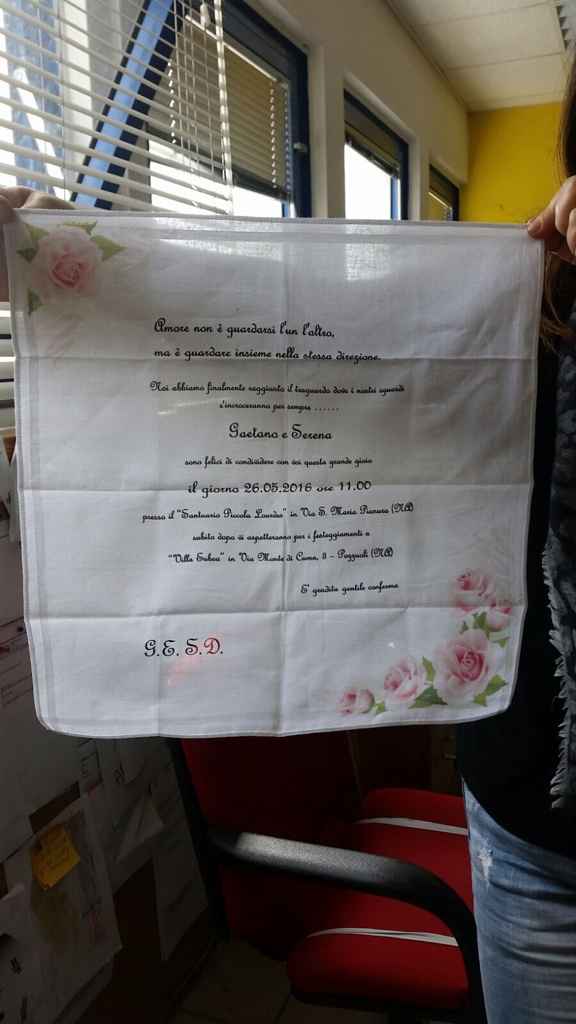 Amore non è guardarsi l'un l'altro,
ma è guardare insieme nella stessa direzione.
Noi abbiamo finalmente raggiunto il traguardo dove i nostri sguardi
s'incroceranno per sempre ......
Gaetano e Serena
sono felici di condividere con voi questa grande gioia
il giorno 26.05.2016 ore 11.00
presso il "Santuario Piccola Lourdes" in Via S. Maria Pianura (NA)
subito dopo vi aspetteranno per i festeggiamenti a
"Villa Eubea" in Via Monte di Cuma, 8 - Pozzuoli (NA)
E' gradita gentile conferma
G.E. S.D.